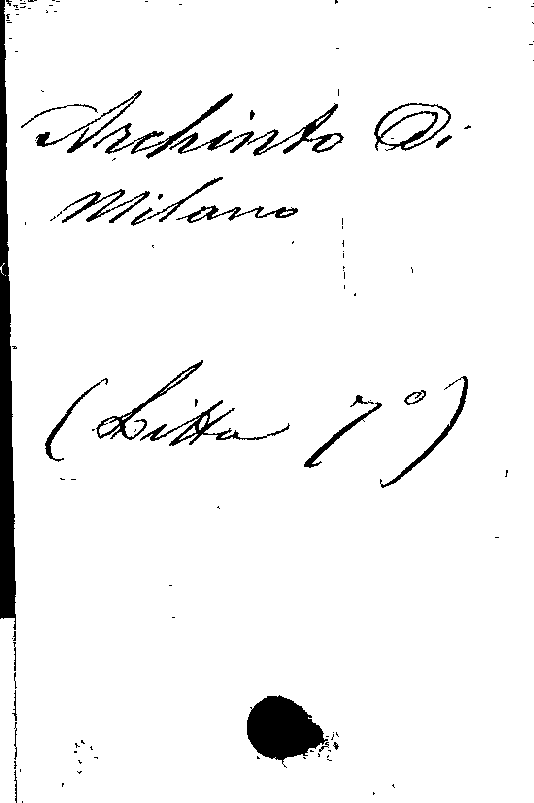 Archinto Di
Milano
(Litta 7º)